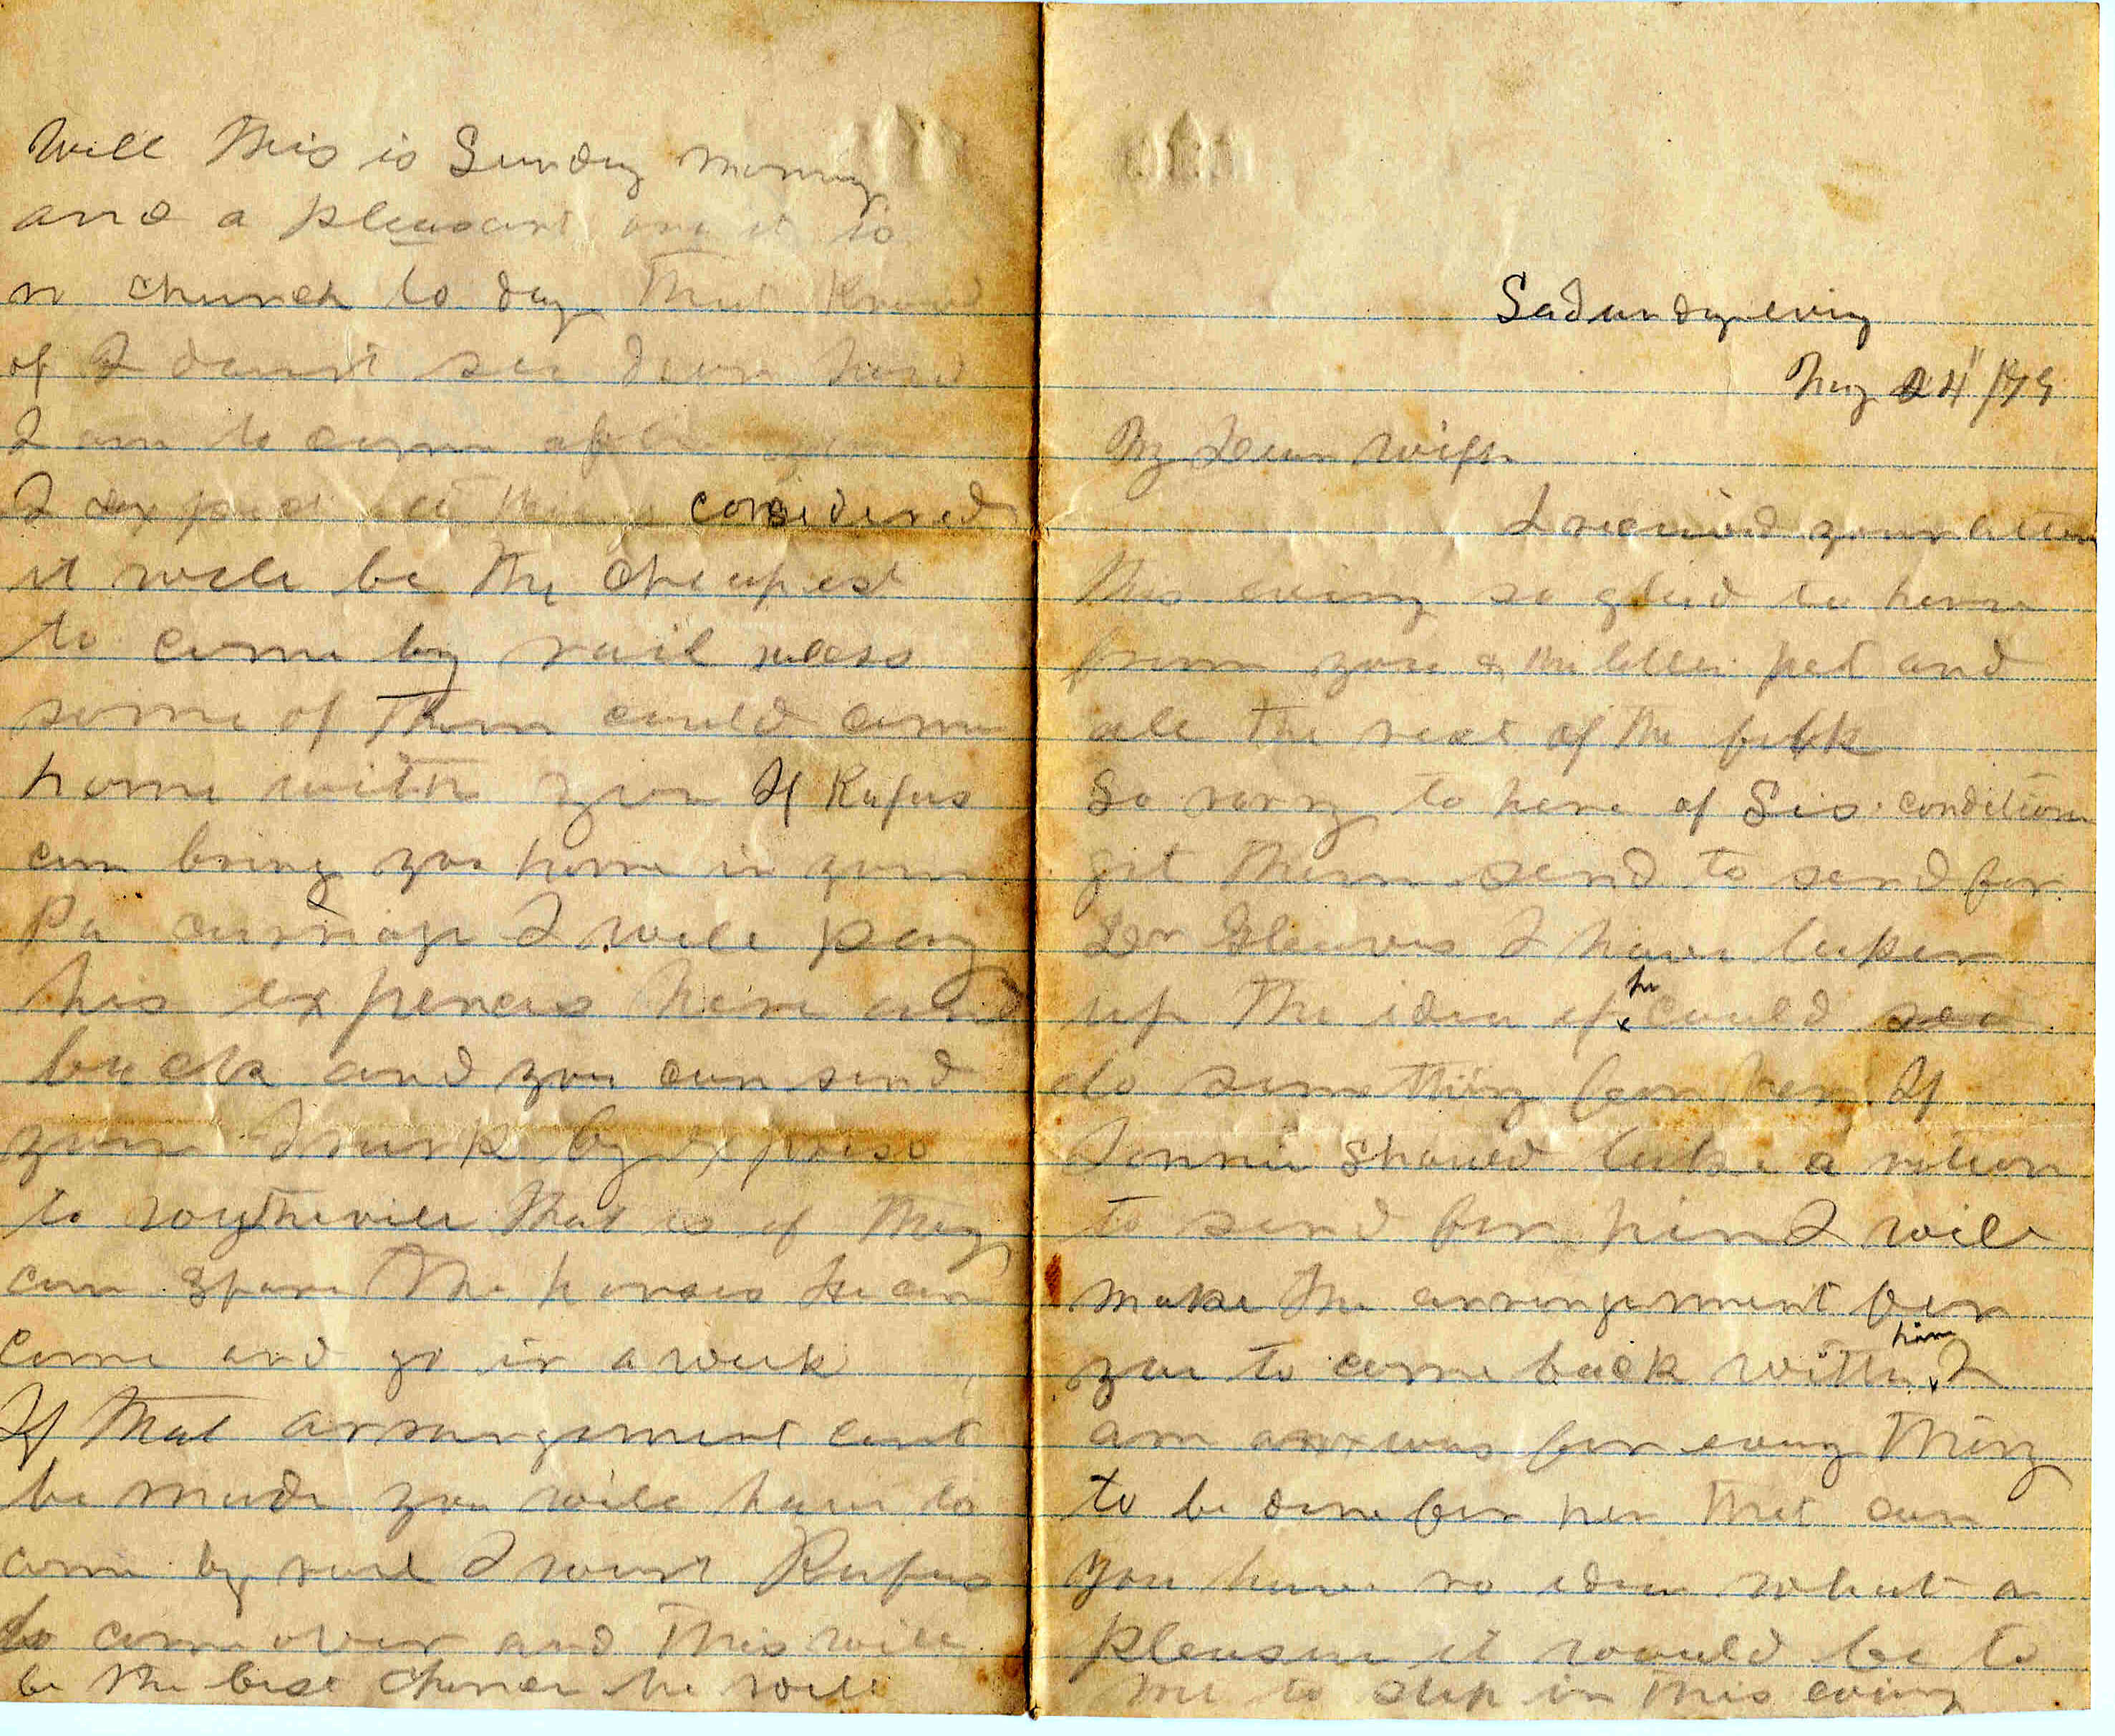 Sadurdy eving
May 24" /79
My Dear Wife
I receivd your letter
this eving so glad to hear
from you & the littli pet and
all the rest of the folk
So sorry to here of Sis. condition
git them send to send for
Dr Gleaves I have taken
up the idea if he could
do something for her. If
shoued take a notion
to send for him I will
make the arrangement for
you to come back with him I
am anxious for evry thing
to be done for her that can
you have no idea what a
pleasure it would be to
me to step in this eving
Will this is Sunday morning
and a pleasant one it is
no church to day that I know
of I dont see how
I am to come after you
I expect all things considered
it will be the cheapest
to come by rail unless
some of them could come
home with you If Rufus
can bring you home in your
Pa carriage I will pay
his expences here and
back and you can send
your Trunk by express
to Wytheville that is if they
can spare the horses he can
come and go in a week
If that arrangement cant
be made you will have to
come by rail I want Rufus
to come over and this will
be the best chance he will